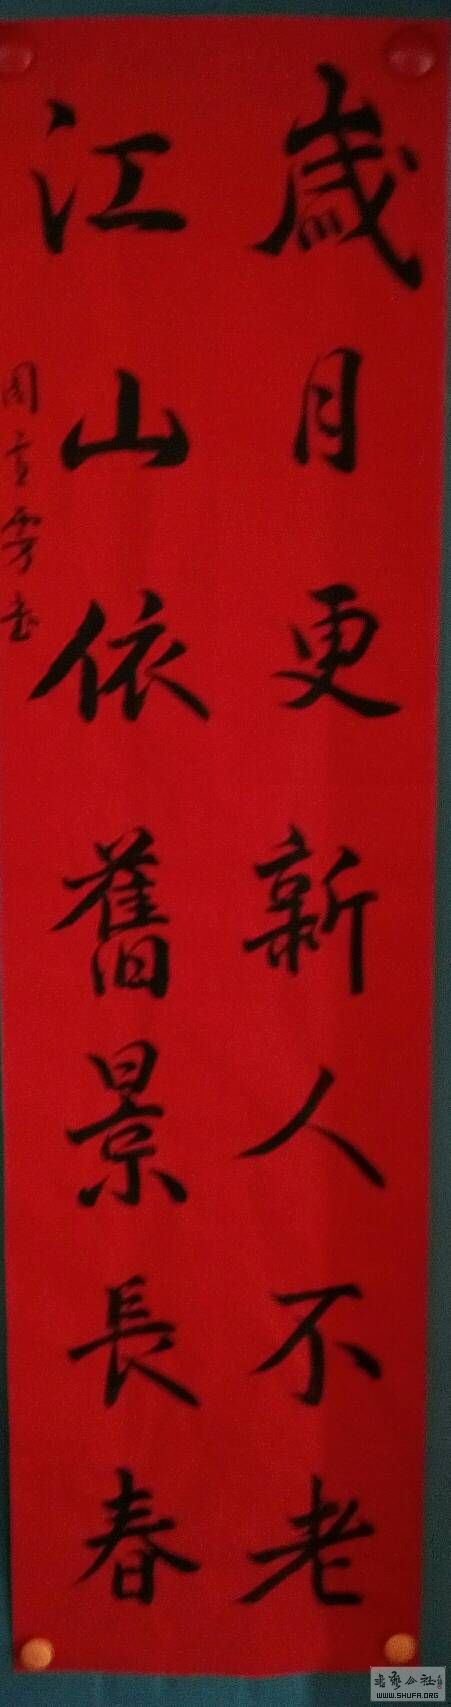 歲月更新人不老
江山依舊景長春
周
書法公社
WWW.SHUFA.ORG